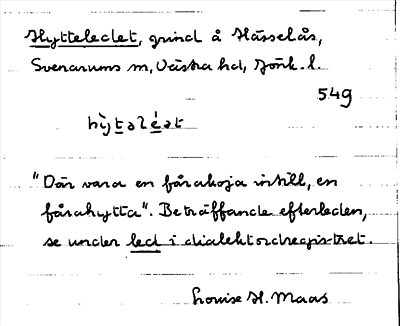 Hytteledet, grind å Hässelås,
Svenarums sn, Västra hd, Jönk. l.
549
hỳtəléət
"Där vara en fårakoja intill, en
fårahytta". Beträffande efterleden,
se under led i dialektordregistret.
Louise H. Maas